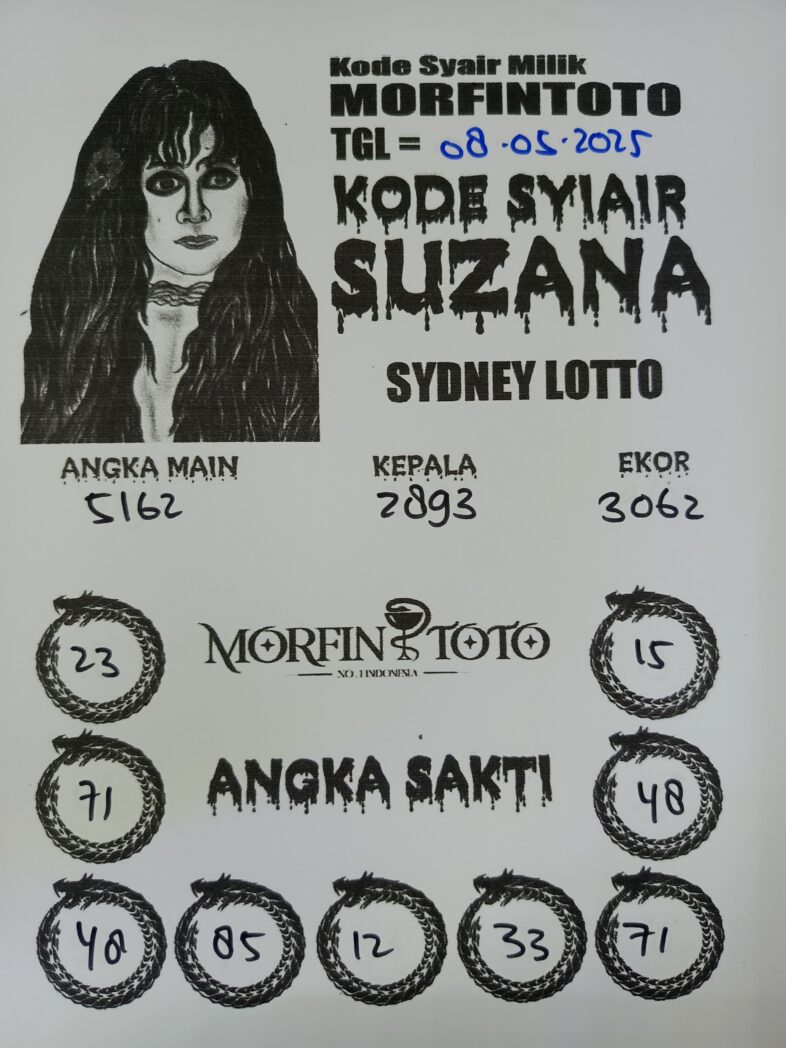 Kode Syair Milik
MORFINTOTO
TGL = 08.05.2025
KODE SYIAIR
SUZANA
SYDNEY LOTTO
ANGKA MAIN KEPALA EKOR
5162 2893 3062
23 MORFIN TOTO 15
NO.1 INDONESIA
71 ANGKA SAKTI 48
48 85 12 33 71